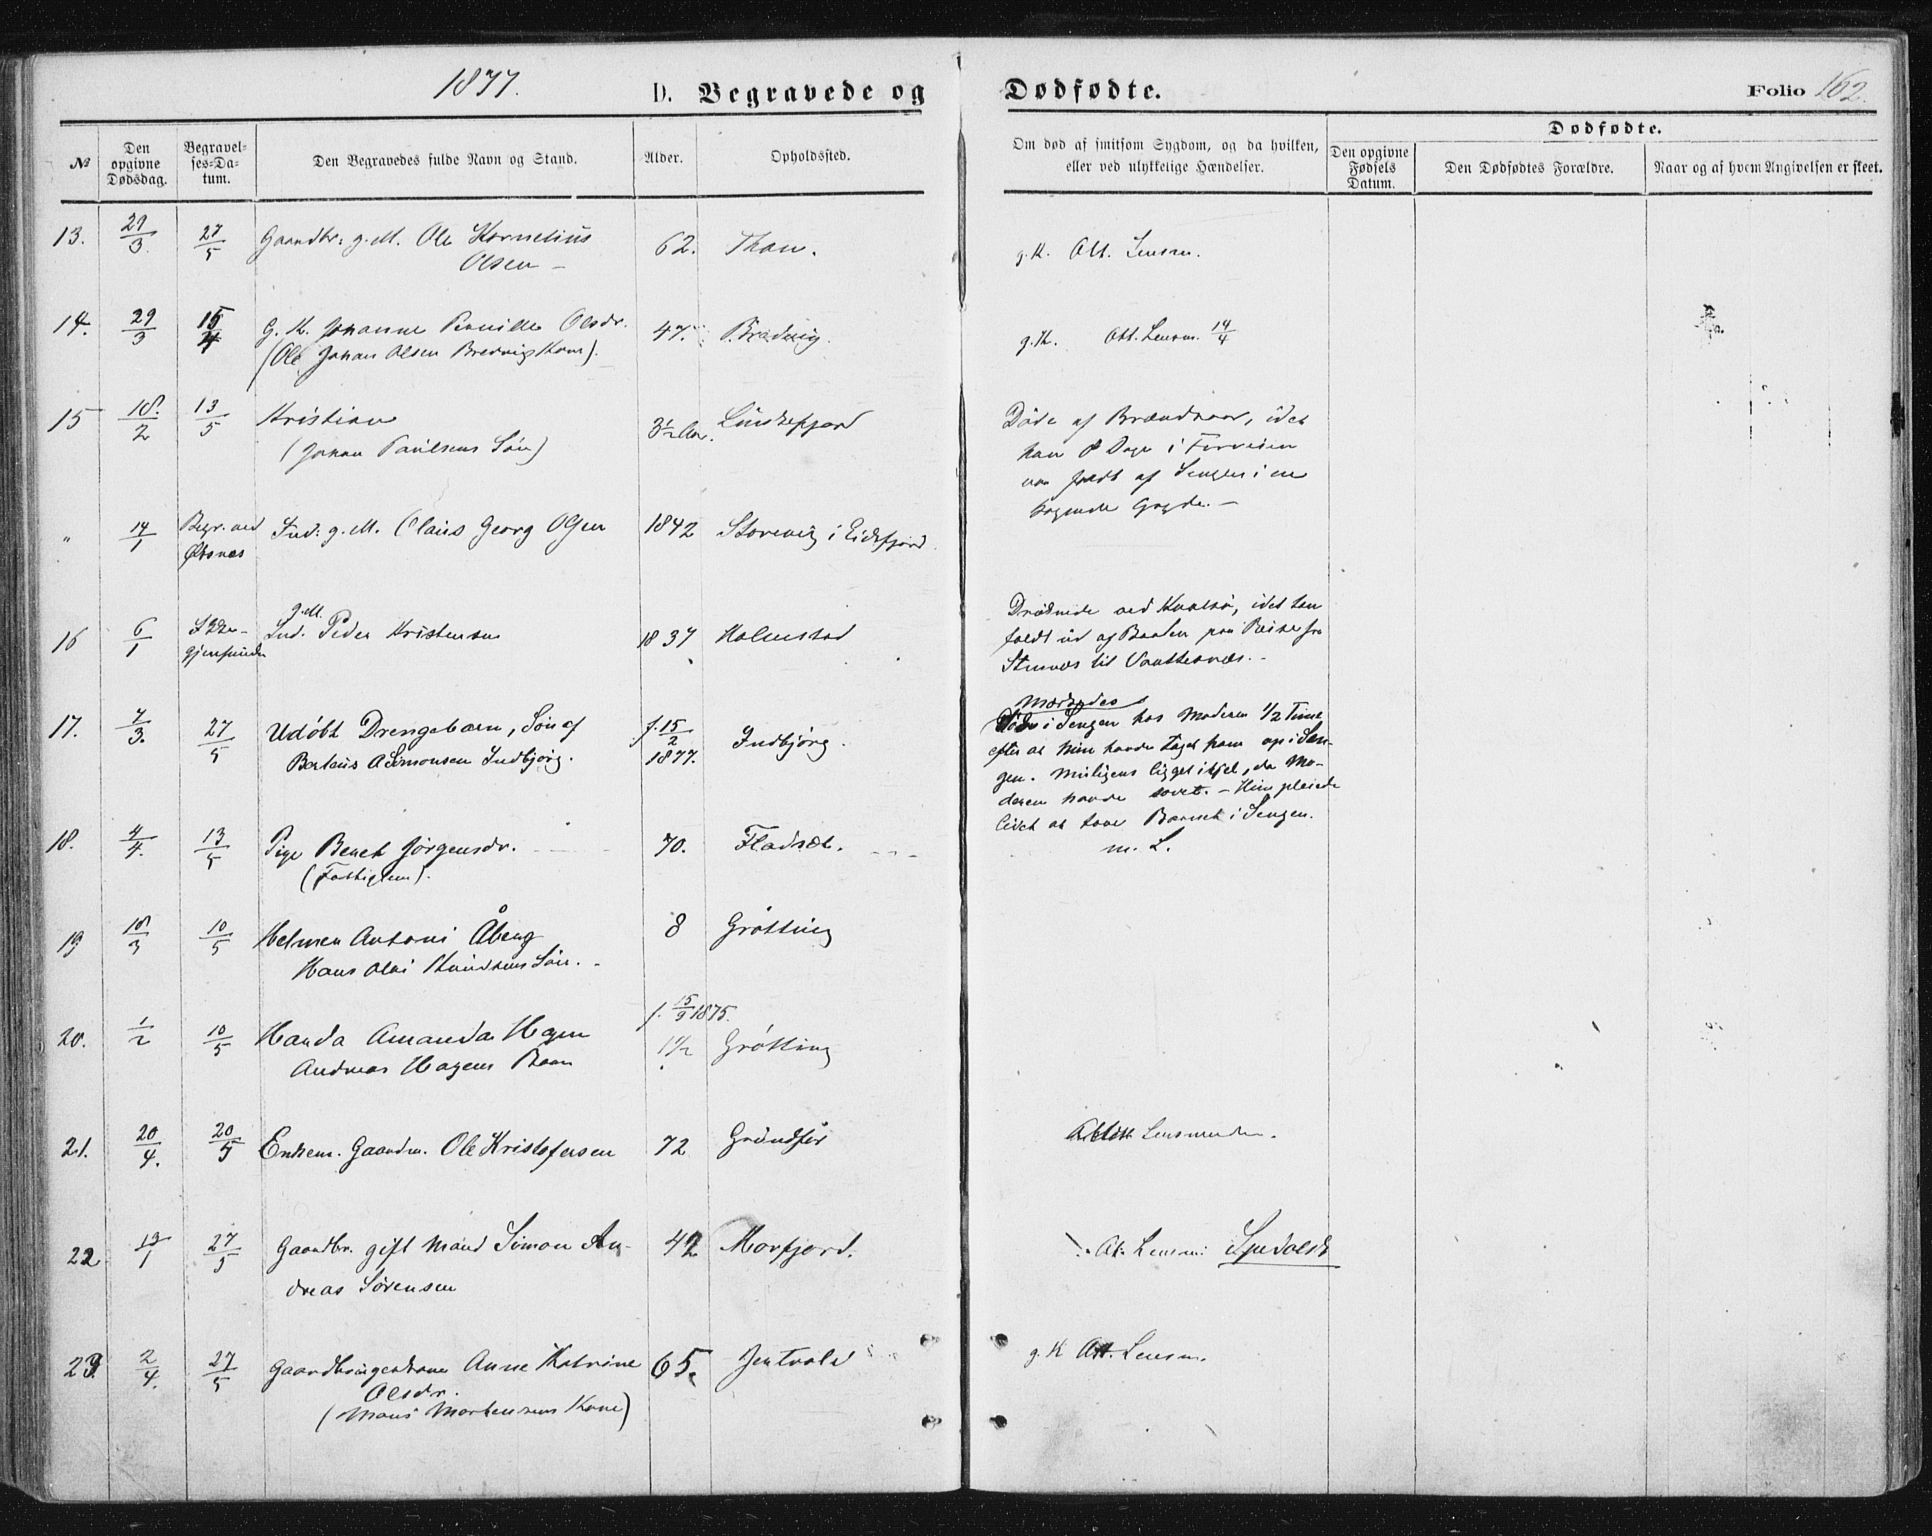 1877.
D. Begravede og
Dødfødte.
Folio 162.
№
Den opgivne Dødsdag.
Begravel-ses-Da-tum.
Den Begravedes fulde Navn og Stand.
Alder.
Opholdssted.
Om død af smitsom Sygdom, og da hvilken,
eller ved ulykkelige Hændelser.
Dødfødte.
Den opgivne Fødsels Datum.
Den Dødfødtes Forældre.
Naar og af hvem Angivelsen er skeet.
13. 29/3. 27/5 Gaardbr. g. M. Ole Kornelius 62. Than. g. K. Att. Lensm.
Olsen –
14. 29/3 15/4 G. K. Johanne Pernille Olsdr. 47. Bredvig. g. K. Att. Lensm. 14/4
(Ole Johan Olsen Bredvigs Kone).
15 18./2 13/5 Kristian 3½ Aar.
(Johan Paulsens Søn)
Døde af Brandsaar, idet
han 8 Dage i Forveien
var faldt af Sengen i en
kogende Gryde. –
" 14/1 Begr. ved Ind. g. M. Claus Georg Olsen 1842 Storevig i Eidsfjord.
Øksnes
16 6/1 Ikke- Ind. g. M. Peder Kristensen 1837 Holmstad
gjenfunden
Druknede ved idet han
faldt ud af Baaden paa Reise fra
Stennes til
17. 7/3. 27/5 Udøbt Drengebarn, Søn af f. 15/2 1877. Indbjørg.
Berteus A Simonsen Indbjørg.
Mærkedes
Død i Sengen hos Moderen 1/2 Time
efter at hun havde taget ham op i Sen-
gen. Muligens ligget ihjel, da Mo-
deren havde sovet. – Hun pleiede
ikke at have Barnet i Sengen.
m. L.
18. 4/4. 13/5 Pige Beret Jørgensdr. 70. Fladsæt.
(Fattiglem).
19 18/3 10/5 Helmer Antoni Åberg 8 Grøtting
Hans Olai Knudsens Søn. –
20. 1/2 10/5 Handa Amanda Hagen f. 15/9 1875. 1½ Grøtting
Andreas Hagens Barn
21. 20/4. 20/5 Enkem. Gaardm. Ole Kristofersen 72 Grundfør Attest Lensmanden.
22 19/1 27/5 Gaardbr. gift Mand Simon An- 42 Morfjord. At. Lensm.
dreas Sørensen
23. 2/4. 27/5 Gaardbrugerkone Anne Katrine 65. Jentvold g. K Att. Lensm.
Olsdr.
(Mons Mortensens Kone)